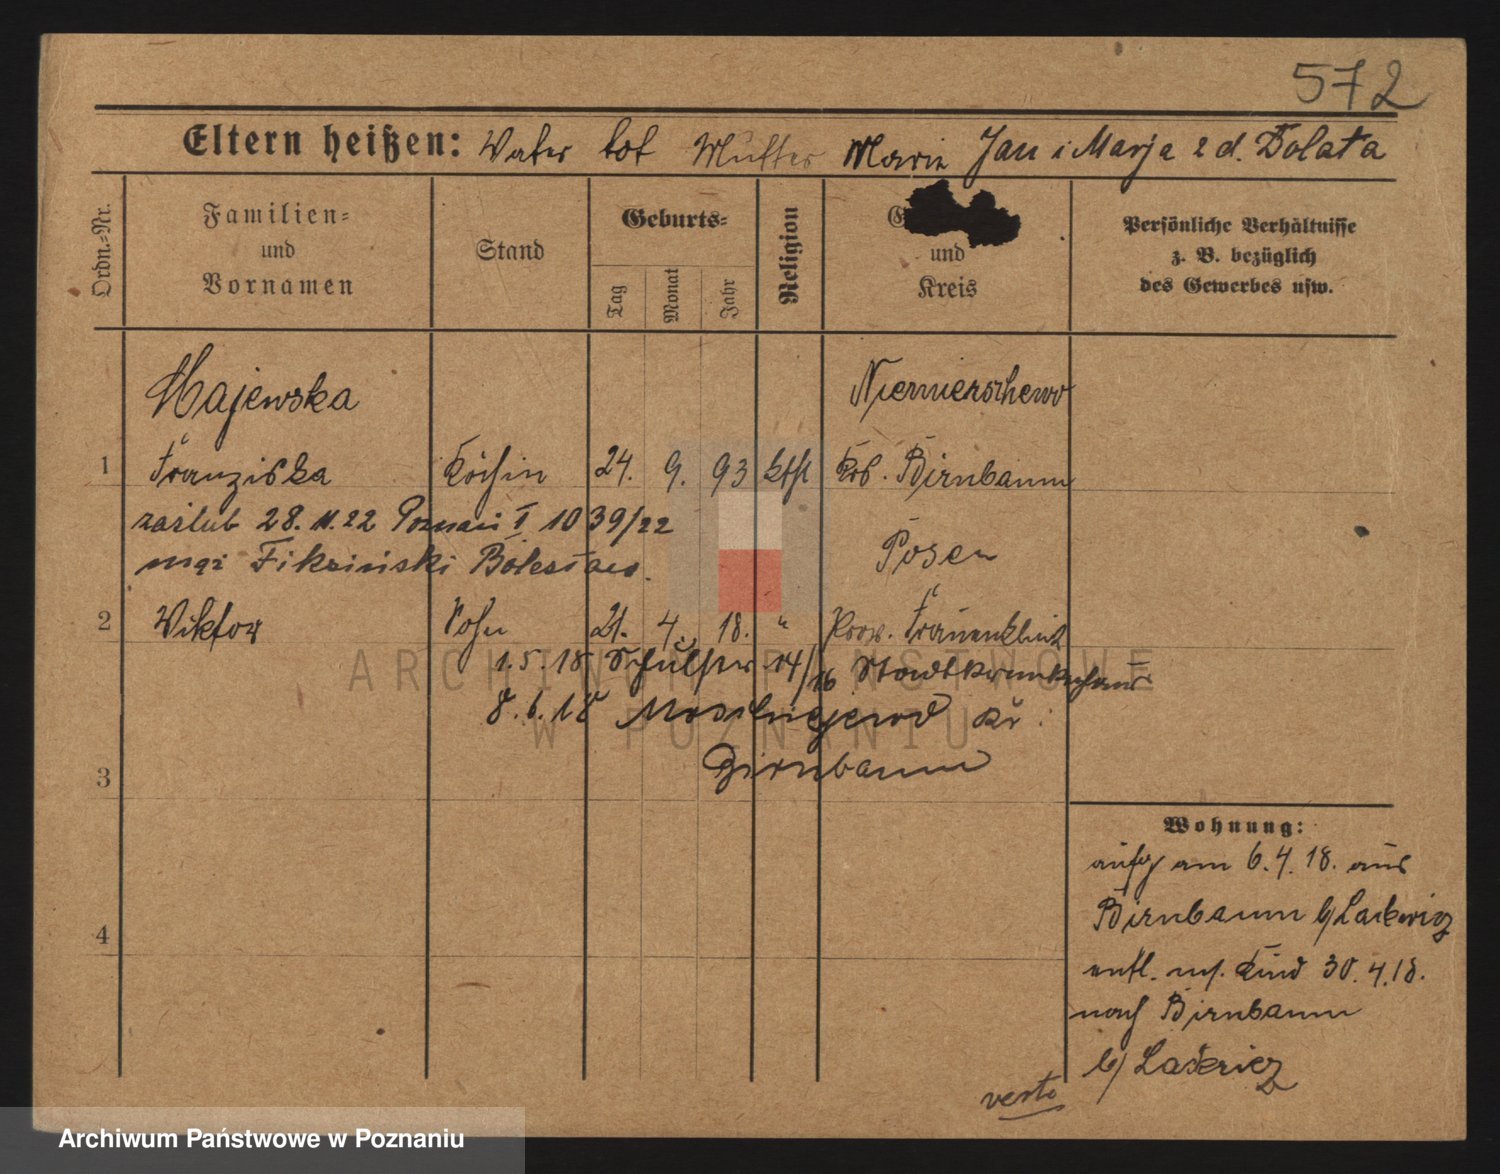 572
Eltern heißen: Vater tot Mutter Maria Jan i Marja z d. Dolata
Ordn.=Nr.
Familien= und Vornamen
Stand
Geburts=
Tag
Monat
Jahr
Religion
und Kreis
Persönliche Verhältnisse z. B. bezüglich des Gewerbes usw.
Majewska Niemierschewo
1 Franziska Köchin 24. 9. 93 kth Krs. Birnbaum
zaślub 28. 11. 22 Poznań I 1039/22 Posen
mąż Fiksiński Bolesław.
2 Viktor Sohn 21. 4. 18. " Prov. Frauenklinik
1.5.18 14/16 Stadtkrankenhaus
8.6.18 Kr.
3 Birnbaum
4
Wohnung:
aufg am 6.4.18. aus
Birnbaum b/ Lackewicz
entl. m. Kind 30.4.18.
nach Birnbaum
b/
verte
ARCHIWUM PAŃSTWOWE
W POZNANIU
Archiwum Państwowe w Poznaniu